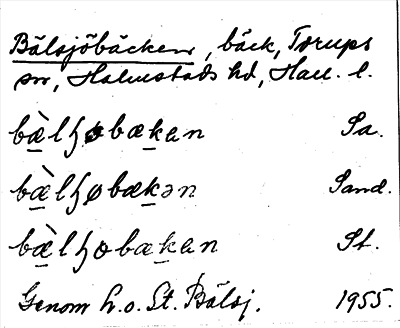 Bälsjöbäcken, bäck, Torups
sn, Halmstads hd, Hall. l.
bæ̀lɧøbækan Sa.
bæ̀lɧøbækən Sand.
bæ̀lɧobækan St.
Genom h.o. St. Bälsj. 1955.